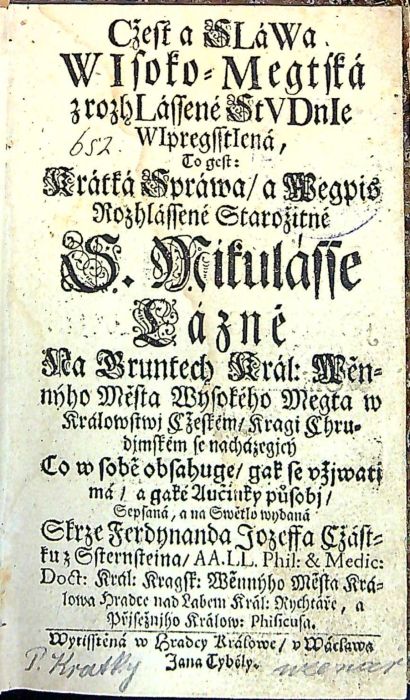 Cżest a SLáWa
WIsoko-Megtská
zrozhLássené StVDnIe
WIpregsstIená,
652.
To gest:
Krátká Spráwa/ a Wegpis
Rozhlássené Starožitné
S. Mikulásse
Lázně
Na Gruntech Král: Wěn-
nýho Města Wysokého Megta w
Králowstwj Cžeském/ Kragi Chru-
djmském se nacházegjcý
Co w sobě obsahuge/ gak se vžjwati
má/ a gaké Aučinky působj/
Sepsaná, a na Swětlo wydaná
Skrze Ferdynanda Jozeffa Cžást-
ku z Ssternsteina/ AA.LL. Phil: & Medic:
Doct: Král: Kragsk: Wěnnýho Města Krá-
lowa Hradce nad Labem Král: Rychtáře, a
Přjsežnjho Králow: Phisicusa.
Wytisstěná w Hradcy Králowe/ v Wáclawa
Jana Tybély.
P. Kratky